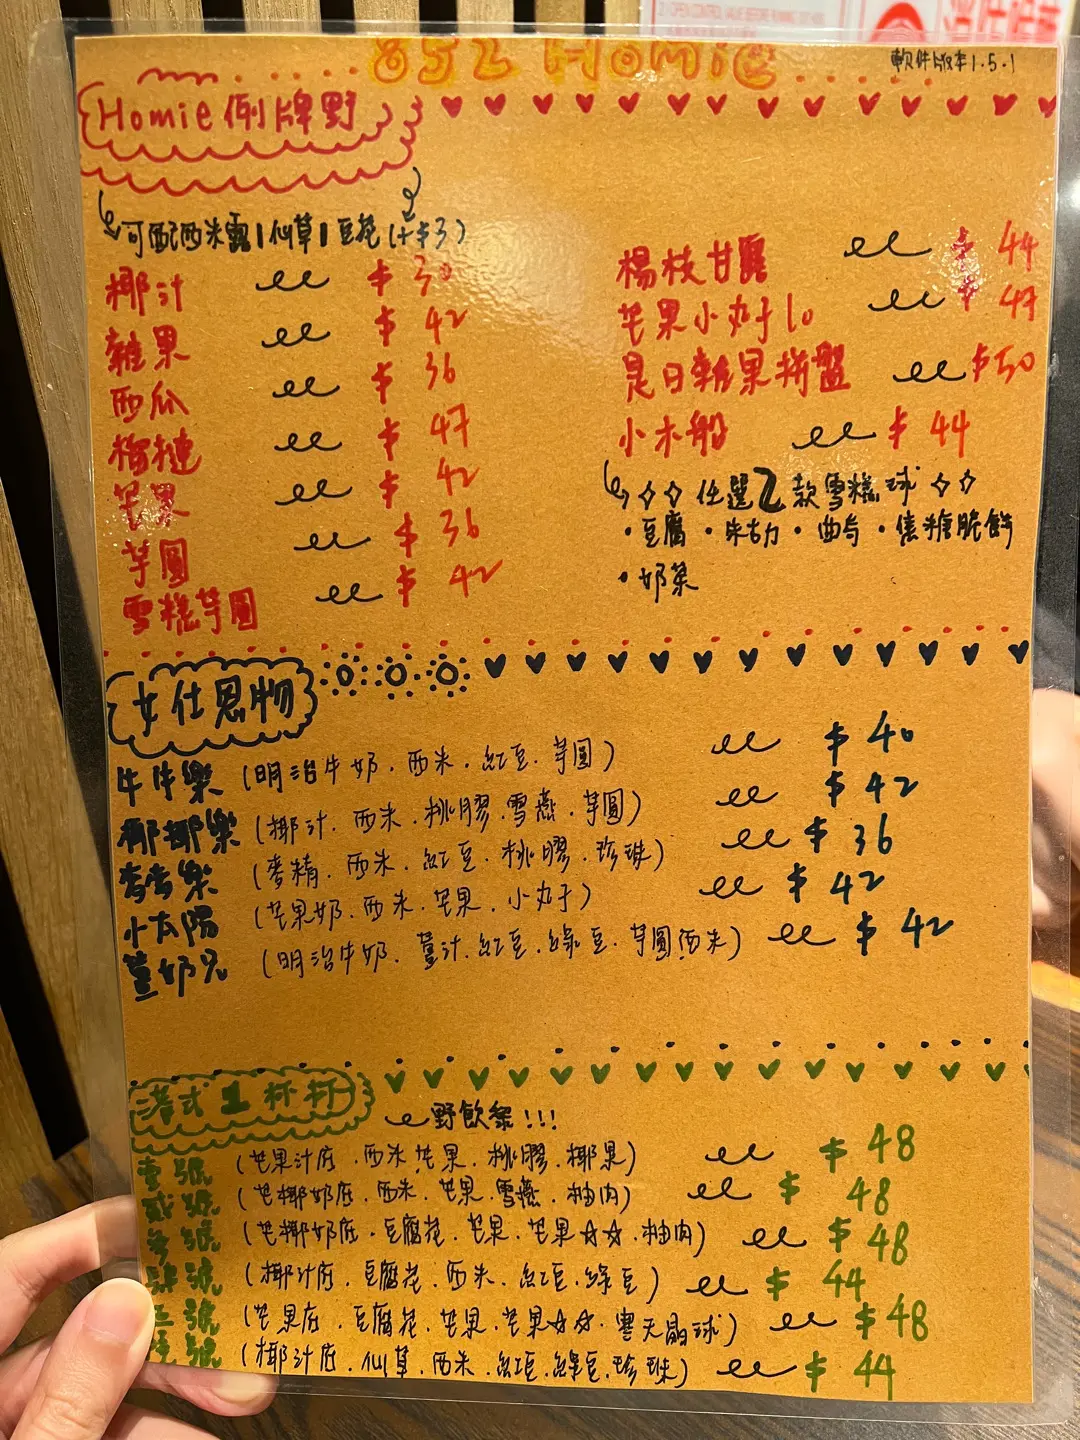 852 Homie
軟件版本1.5.1
Homie例牌野
可配西米露|仙草|豆花(+$3)
椰汁 $30
雜果 $42
西瓜 $36
榴槤 $47
芒果 $42
芋圓 $36
雪糕芋圓 $42
楊枝甘露 $44
芒果小丸子10 $47
是日雜果拼盤 $50
小木船 $44
任選2款雪糕球
·豆腐·朱古力·曲奇·焦糖脆餅
·奶茶
女仕恩物
牛牛樂(明治牛奶.西米.紅豆.芋圓) $40
椰椰樂(椰汁.西米.桃膠.雪燕.芋圓) $42
麥麥樂(麥精.西米.紅豆.桃膠.珍珠) $36
小太陽(芒果奶.西米.芒果.小丸子) $42
薑奶兄(明治牛奶.薑汁.紅豆.綠豆.芋圓西米) $42
港式1杯杯
野飲架!!!
壹號(芒果汁底.西米芒果.桃膠.椰果) $48
貳號(芒椰奶底.西米.芒果.雪燕.柚肉) $48
參號(芒椰奶底.豆腐花.芒果.芒果☆☆.柚肉) $48
肆號(椰汁底.豆腐花.西米.紅豆.綠豆) $44
號(芒果底.豆腐花.芒果.芒果☆☆.寒天晶球) $48
號(椰汁底.仙草.西米.紅豆.綠豆.珍珠) $44